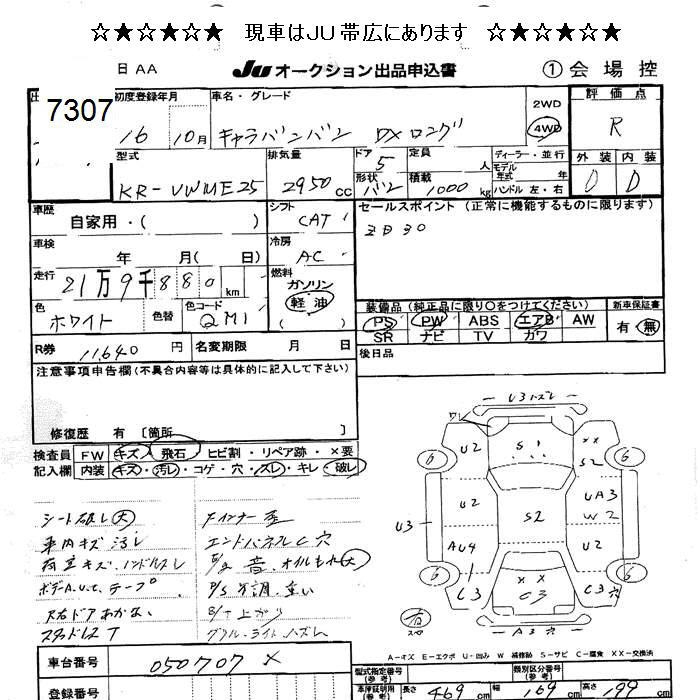 ☆★☆★☆★ 現車はJU帯広にあります ☆★☆★☆★
日 AA JU オークション出品申込書 ① 会場控
7307
初度登録年月 車名・グレード 2WD 評価点
16 10月 キャラバンバン DXロング 4WD R
型式 排気量 ドア 定員 ディーラー・並行 外装 内装
5 人 モデル年式 年
KR-VWME25 2950cc 形状 バン 積載 1000kg ハンドル 左・右 D D
車歴 自家用・( ) シフト CAT セールスポイント (正常に機能するものに限ります)
車検 年 月( 日) 冷房 AC 3日30
走行 21万9千880km 燃料 ガソリン 軽油 ( )
色 ホワイト 色替 色コード QM1
装備品 (純正品に限り○をつけてください) 新車保証書
PS PW ABS エアB AW 有・無
SR ナビ TV カワ
R券 11,640円 名変期限 月 日 後日品
注意事項申告欄(不具合内容等は具体的に記入して下さい)
修復歴 有 [箇所 ]
検査員 FW キズ・飛石 ヒビ割・リペア跡・×要
記入欄 内装 キズ・汚レ・コゲ・穴・スレ・キレ・破レ
シート破レ大
車内キズ汚レ
荷室キズ、ハンドルスレ
テープ
スタッドレスT
エンドパネルC穴
音、オイルもれ大
P/S不調、重い
ハズレ
U3ハズレ
ワレ
U2 S1 ×× S2
6 6
U2 UA3 W2
U3 S2
AU4 U2
6 6
C3 ×× C3 C3穴
A3穴
有
A-キズ E-エクボ U-凹み W 補修跡 S-サビ C-腐食 XX-交換済
車台番号 050707 ×
登録番号
型式指定番号(参考) 類別区分番号(参考)
車庫証明用(参考) 長さ 469cm 幅 169cm 高さ 199cm